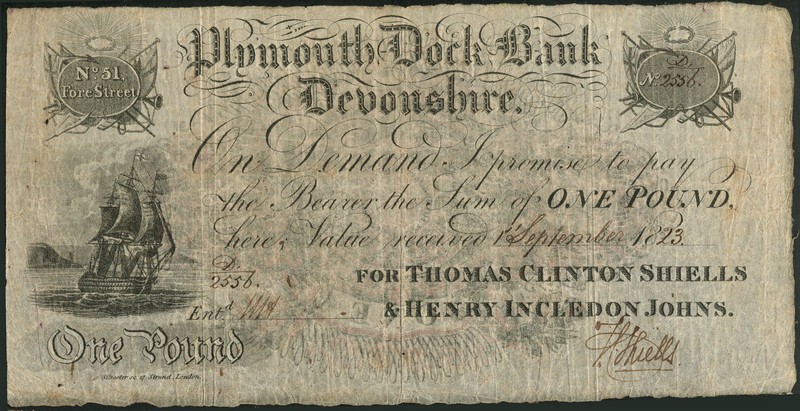 No. 51.
Fore Street
Plymouth Dock Bank
Devonshire.
D/
No. 2556.
On Demand I promise to pay
the Bearer the Sum of ONE POUND,
here, Value received 1st September 1823
D/
2556.
FOR THOMAS CLINTON SHIELLS
& HENRY INCLEDON JOHNS.
Entd
One Pound
Shiells
Strand, London